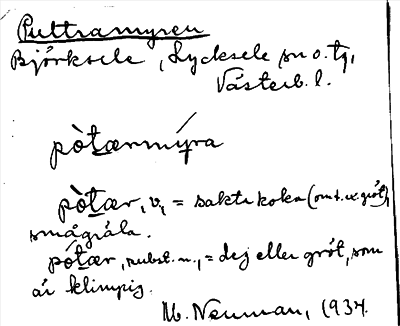 Puttramyren
Björksele, Lycksele sn o. tg,
Västerb. l.
pòtærmýra
pòtær, v, = sakta koka (om t. ex. gröt),
småputtra.
pótær, subst. n., = dej eller gröt, som
är klimpig.
M. Neuman, 1934.